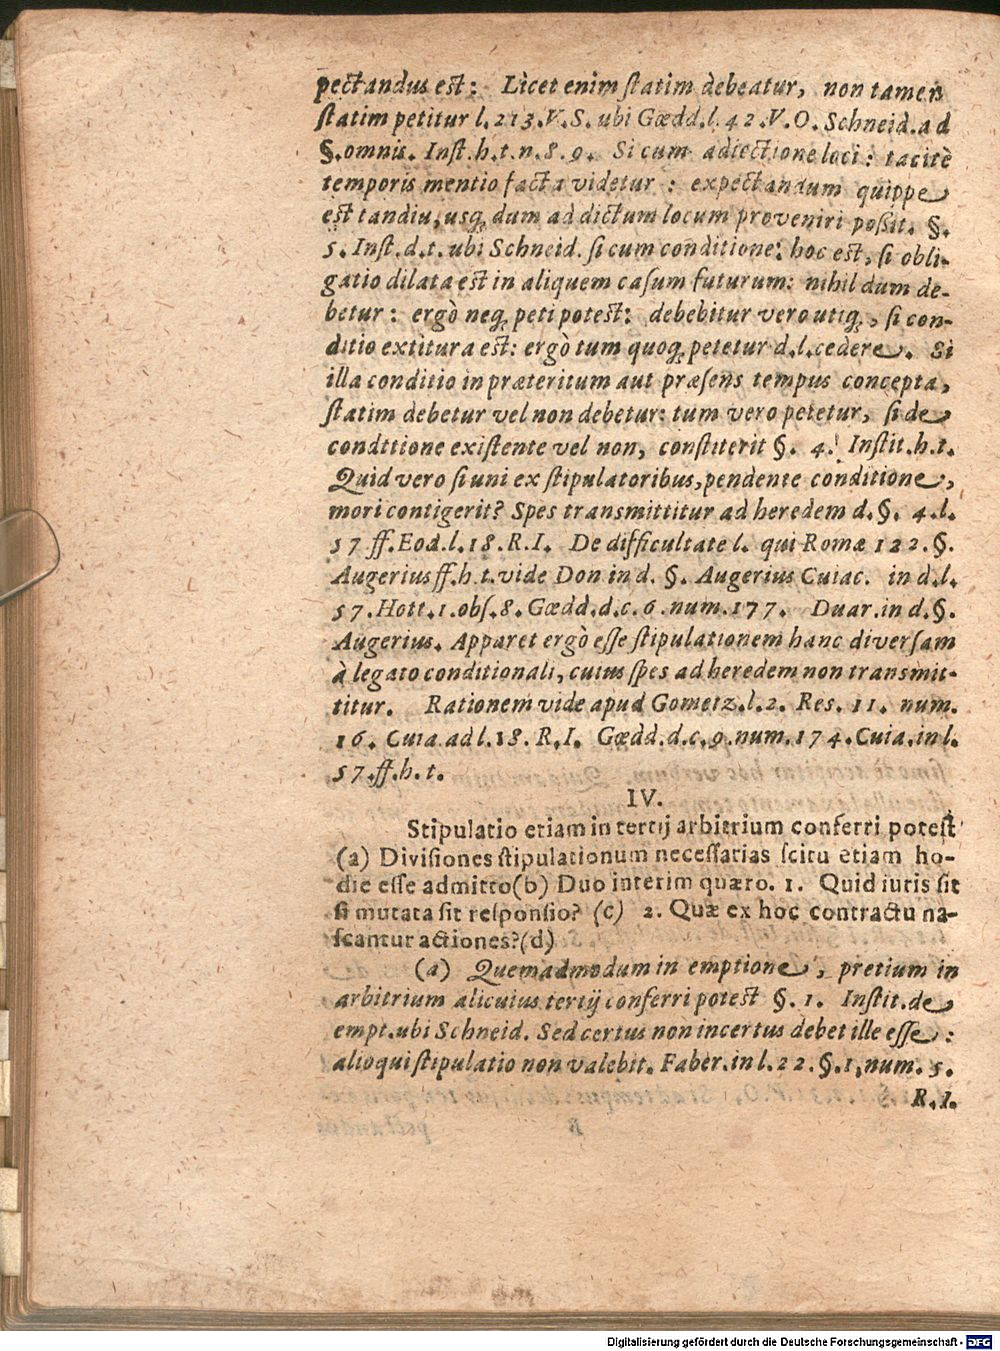 pectandus est: Licet enim statim debeatur, non tamen
statim petitur l.213.V.S. ubi Gœdd.l.42.V.O. Schneid.ad
§.omnis. Inst.h.t.n.8.9. Si cum adiectione loci: tacitè
temporis mentio facta videtur: expectandum quippe
est tandiu, usq; dum ad dictum locum proveniri poßit. §.
5. Inst.d.t. ubi Schneid. si cum conditione: hoc est, si obli-
gatio dilata est in aliquem casum futurum: nihil dum de-
betur: ergò neq; peti potest: debebitur vero utiq;, si con-
ditio extitura est: ergò tum quoq; petetur d.l. cedere. Si
illa conditio in præteritum aut præsens tempus concepta,
statim debetur vel non debetur: tum vero petetur, si de
condttione existente vel non, constiterit §. 4. Instit.h.t.
Quid vero si uni ex stipulatoribus, pendente conditione,
mori contigerit? Spes transmittitur ad heredem d.§. 4.l.
57 ff.Eod.l.18.R.I. De difficultate l. qui Romæ 122.§.
Augerius ff.h.t. vide Don in d. §. Augerius Cuiac. in d.l.
57.Hott.1.obs.8. Gœdd.d.c.6.num.177. Duar.in d.§.
Augerius. Apparet ergò esse stipulationem hanc diversam
à legato conditionali, cuius spes ad heredem non transmit-
titur. Rationem vide apud Gometz.l.2. Res. 11. num.
16. Cuia.ad l.18. R.I. Gœdd.d.c.9.num.174.Cuia.in l.
57.ff.h.t.
IV.
Stipulatio etiam in tertij arbitrium conferri potest
(a) Divisiones stipulationum necessarias scitu etiam ho-
die esse admitto(b) Duo interim quæro. 1. Quid iuris sit
si mutata sit responsio? (c) 2. Quæ ex hoc contractu na-
scantur actiones?(d)
(a) Quemadmodum in emptione, pretium in
arbitrium alicuius tertij conferri potest §. 1. Instit.de
empt.ubi Schneid. Sed certus non incertus debet ille esse:
alioqui stipulatio non valebit. Faber.in l.22.§.1,num.5.
R.I.
Digitalisierung gefördert durch die Deutsche Forschungsgemeinschaft - DFG